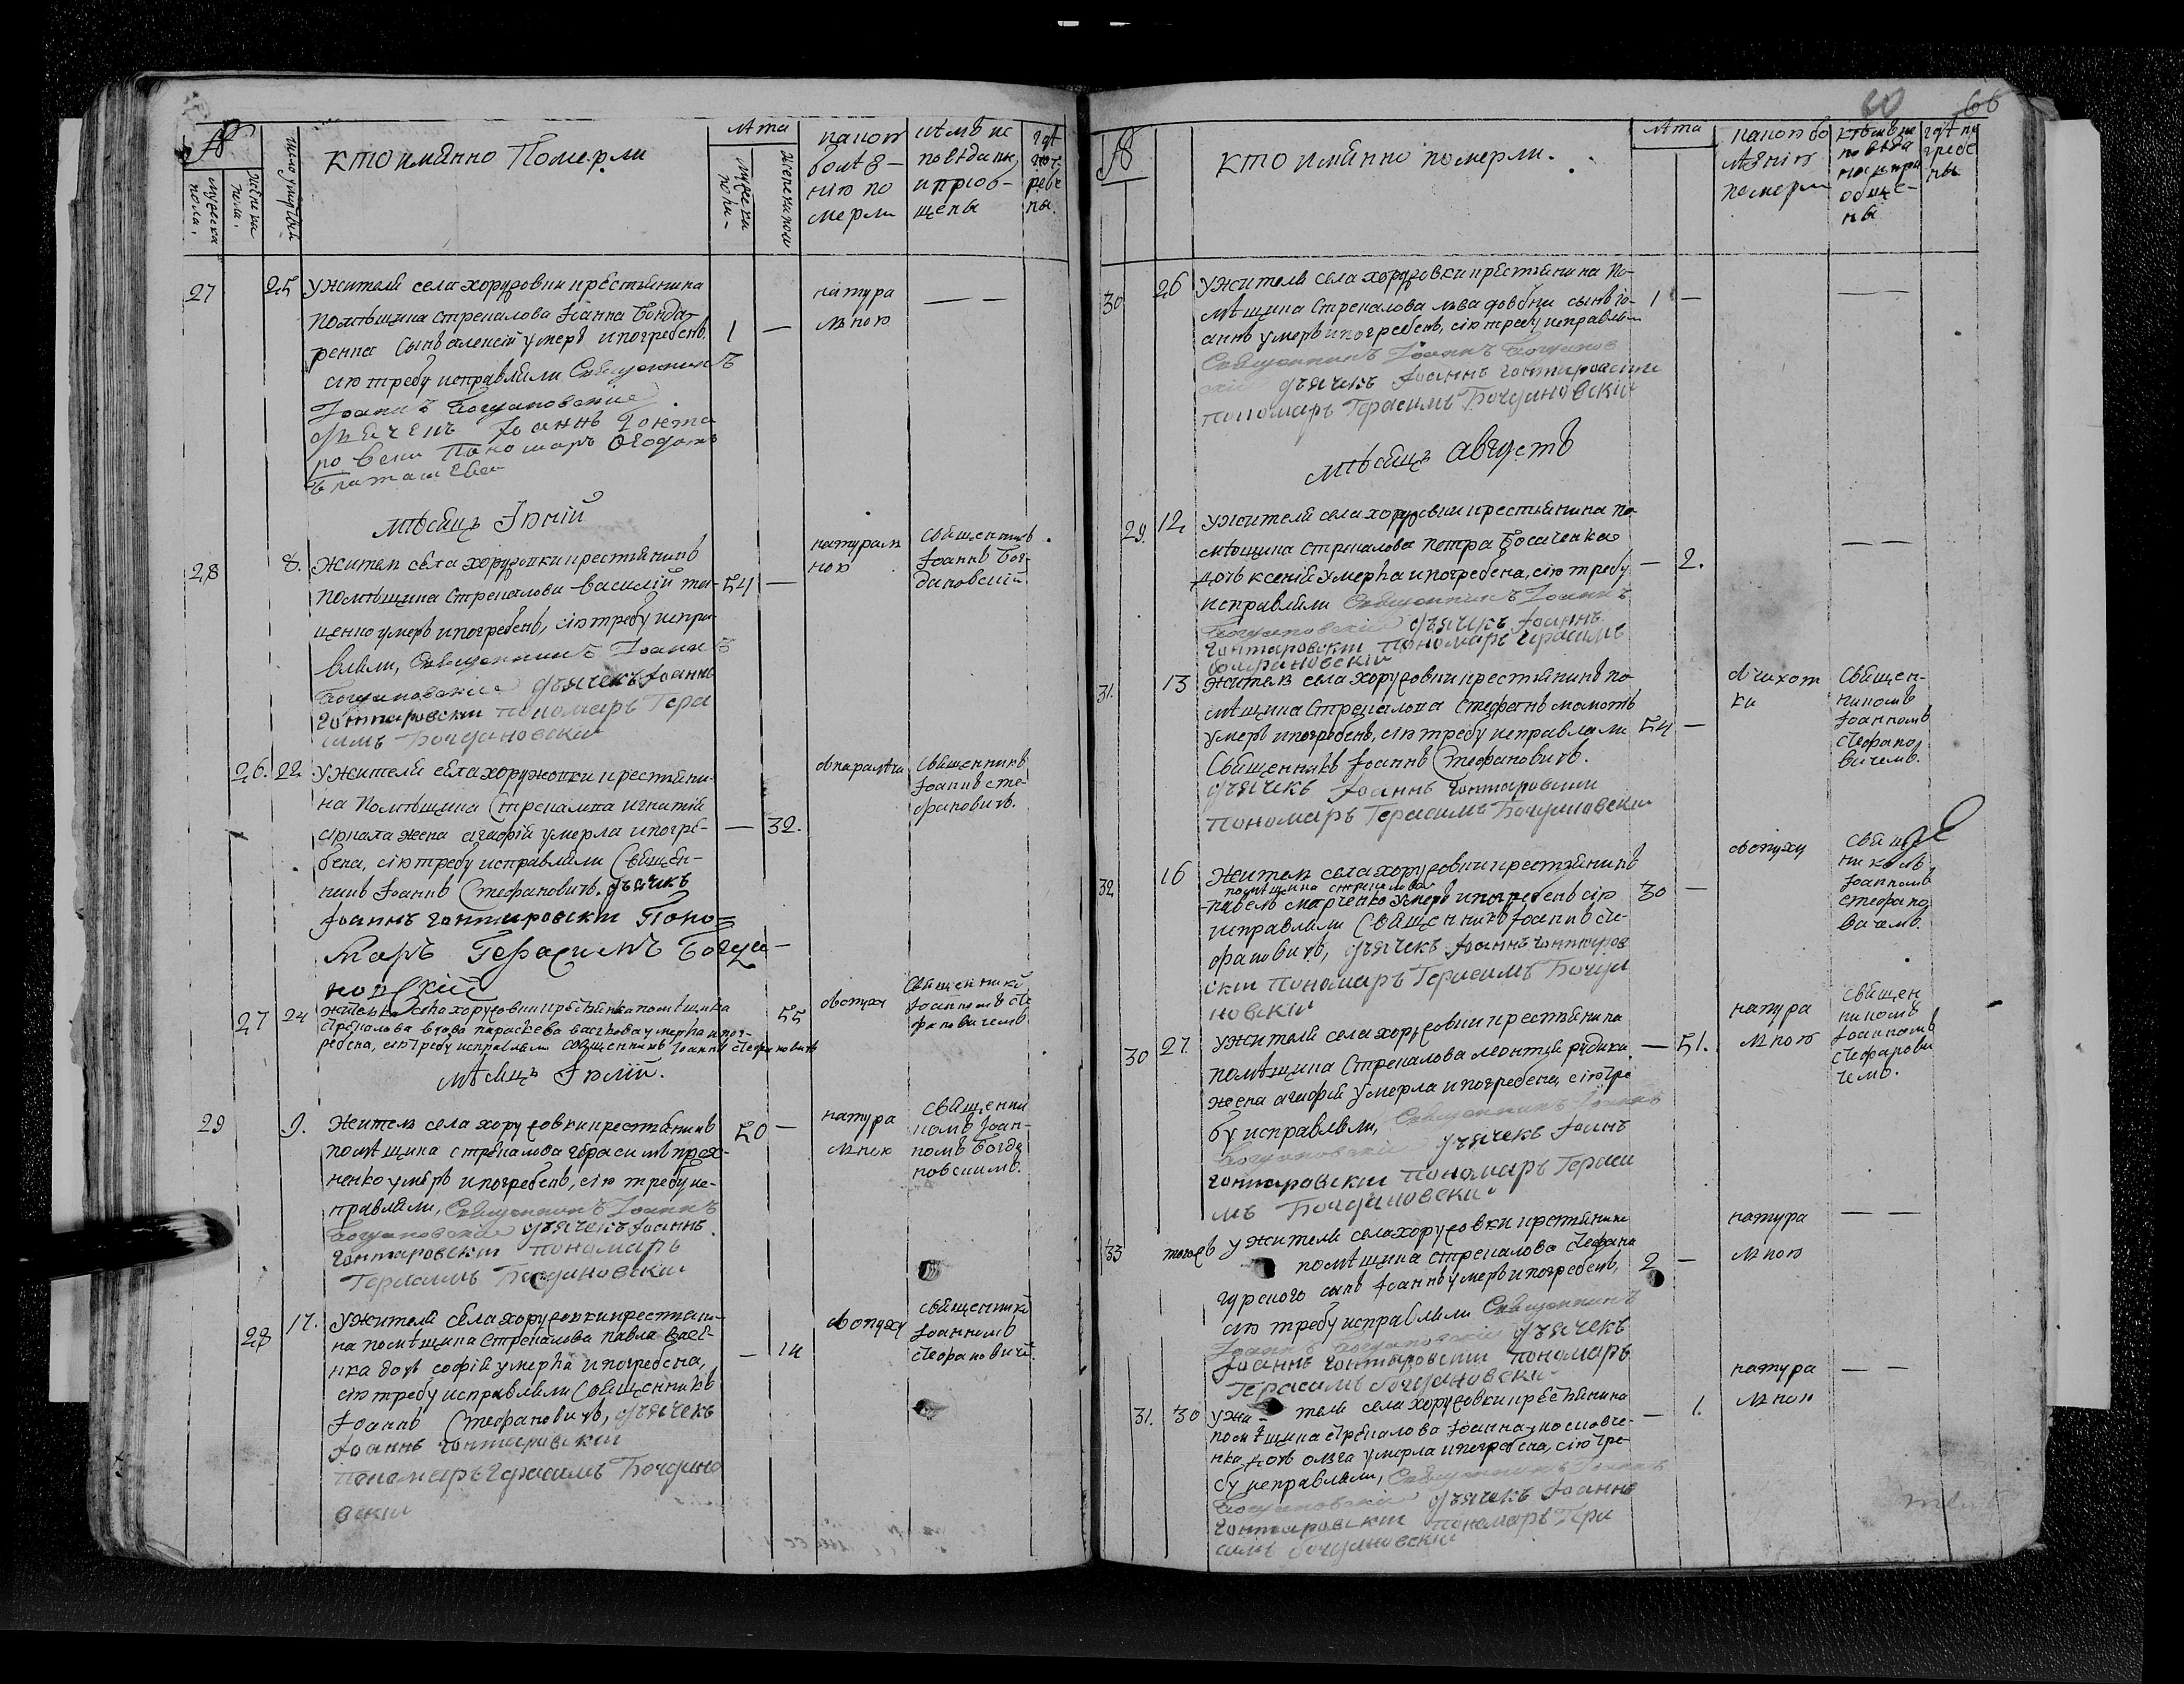 №
мужеска пола.
женска пола.
число умертвія
кто имянно Померли
лѣта
мужеска пола
женска пола
какою
болѣз-
нію по
мерли
кѣмъ ис
повѣданы,
и пріоб-
щены
гдѣ
пог
ребе
ны.
27 25 У жителя села хоружовки крестьянина
помѣщика Стрекалова Іоанна Бонда-
ренка сынъ алексій умеръ и погребенъ, 1 —
сію требу исправляли Священникъ
Іоаннъ Богдановскіе
дьячекъ Іоаннъ Гонта
ровски Пономарь
натура
льною
— —
мѣсяцъ Іюній
28 8. житель села хоружовки крестьянинъ
помѣщика Стрекалова Василій 54 —
щенко умеръ и погребенъ, сію требу испра-
вляли, Священникъ Іоаннъ
Богдановскіе дьячекъ Іоаннъ
Гонтаровски пономарь Гера
симъ Богдановски
натураль
ною
Священникъ
Іоаннъ Бог-
дановскій
26. 22 У жителя села хоружовки крестьяни-
на Помѣщика Стрекалова игнатія
жена агафія умерла и погре- — 32.
бена, сію требу исправляли Священ-
никъ Іоаннъ Стефановичъ. дьячекъ
Іоаннъ Гонтаровски Поно=
маръ Герасимъ Богда-
новскій
Священникъ
Іоаннъ сте-
фановичъ.
27 24 жителька села хоружовки крестьянка помѣщика
Стрекалова вдова параскева васкова умерла и пог- 55
ребена, сію требу исправляли священникъ Іоаннъ Стефановичъ
Священникъ
Іоанномъ Сте
фановичемъ
мѣсяцъ Іюлій.
29 9. житель села хоружовки крестьянинъ 50 —
помѣщика стрекалова герасимъ
ненко умеръ и погребенъ, сію требу ис-
правляли, Священникъ Іоаннъ
Богдановскіе дьячекъ Іоаннъ
Гонтаровски пономарь
Герасимъ Богдановски
натура
льною
священни
комъ Іоан-
номъ Богда
новскимъ.
28 17. У жителя села хоружовки крестьяни-
на помѣщика Стрекалова павла
нка дочь софія умерла и погребена, — 14
сію требу исправляли Священникъ
Іоаннъ Стефановичъ, дьячекъ
Іоаннъ Гонтаровски
пономарь Герасимъ Богдано
вски
священникъ
Іоанномъ
стефановичъ.
60 66
№
кто имянно померли.
лѣта
какою бо
лѣзнію
померли
кѣмъ ис
повѣда
ны и при
обще-
ны
гдѣ по
гребе
ны
30 26 У жителя села хоружовки крестьянина По-
мѣщика Стрекалова льва довбни сынъ Іо- 1 —
аннъ умеръ и погребенъ, сію требу исправляли
Священникъ Іоаннъ Богданов
скіе дьячекъ Іоаннъ Гонтаровски
пономаръ Герасимъ Богдановскій
— —
мѣсяцъ августъ
29. 12 У жителя села хоружовки крестьянина по-
мѣщика Стрекалова петра
дочь ксенія умерла и погребена, сію требу — 2.
исправляли Священникъ Іоаннъ
Богдановскіе дьячекъ Іоаннъ
Гонтаровски пономарь Герасимъ
Богдановскій
— —
31. 13 житель села хоружовки крестьянинъ по-
мѣщика Стрекалова Стефанъ момотъ
умеръ и погребенъ, сію требу исправляли 54 —
Священникъ Іоаннъ Стефановичъ.
дьячекъ Іоаннъ Гонтаровски
пономаръ Герасимъ Богдановски
Священ-
никомъ
Іоанномъ
стефано
вичемъ.
32 16 житель села хоружовки крестьянинъ
помѣщика стрекалова
павелъ марченко умеръ и погребенъ сію 30 —
исправляли Священникъ Іоаннъ Сте-
фановичъ, дьячекъ Іоаннъ Гонтаров
ски пономаръ Герасимъ Богда
новски
Священ
никомъ
Іоанномъ
стефано
вичемъ.
30 27. У жителя села хоружовки крестьянина
помѣщика Стрекалова леонтія рудика — 51.
жена агафія умерла и погребена, сію тре
бу исправляли, Священникъ Іоаннъ
Богдановскіе дьячекъ Іоаннъ
Гонтаровски пономаръ Гераси
мъ Богдановски
натура
льною
Священ
никомъ
Іоанномъ
стефанови
чемъ.
33 тогожъ У жителя села хоружовки крестьянина
помѣщика стрекалова Стефана
сынъ Іоаннъ умеръ и погребенъ, 2 —
сію требу исправляли Священникъ
Іоаннъ Богдановскіе дьячекъ
Іоаннъ Гонтаровски пономаръ
Герасимъ Богдановски
натура
льною
— —
31. 30 У жителя села хоружовки крестьянина
помѣщика Стрекалова Іоанна — 1.
нка дочь ольга умерла и погребена, сію тре
бу исправляли, Священникъ Іоаннъ
Богдановскіе дьячекъ Іоаннъ
Гонтаровски пономаръ Гера
симъ Богдановскій
натура
льною
— —